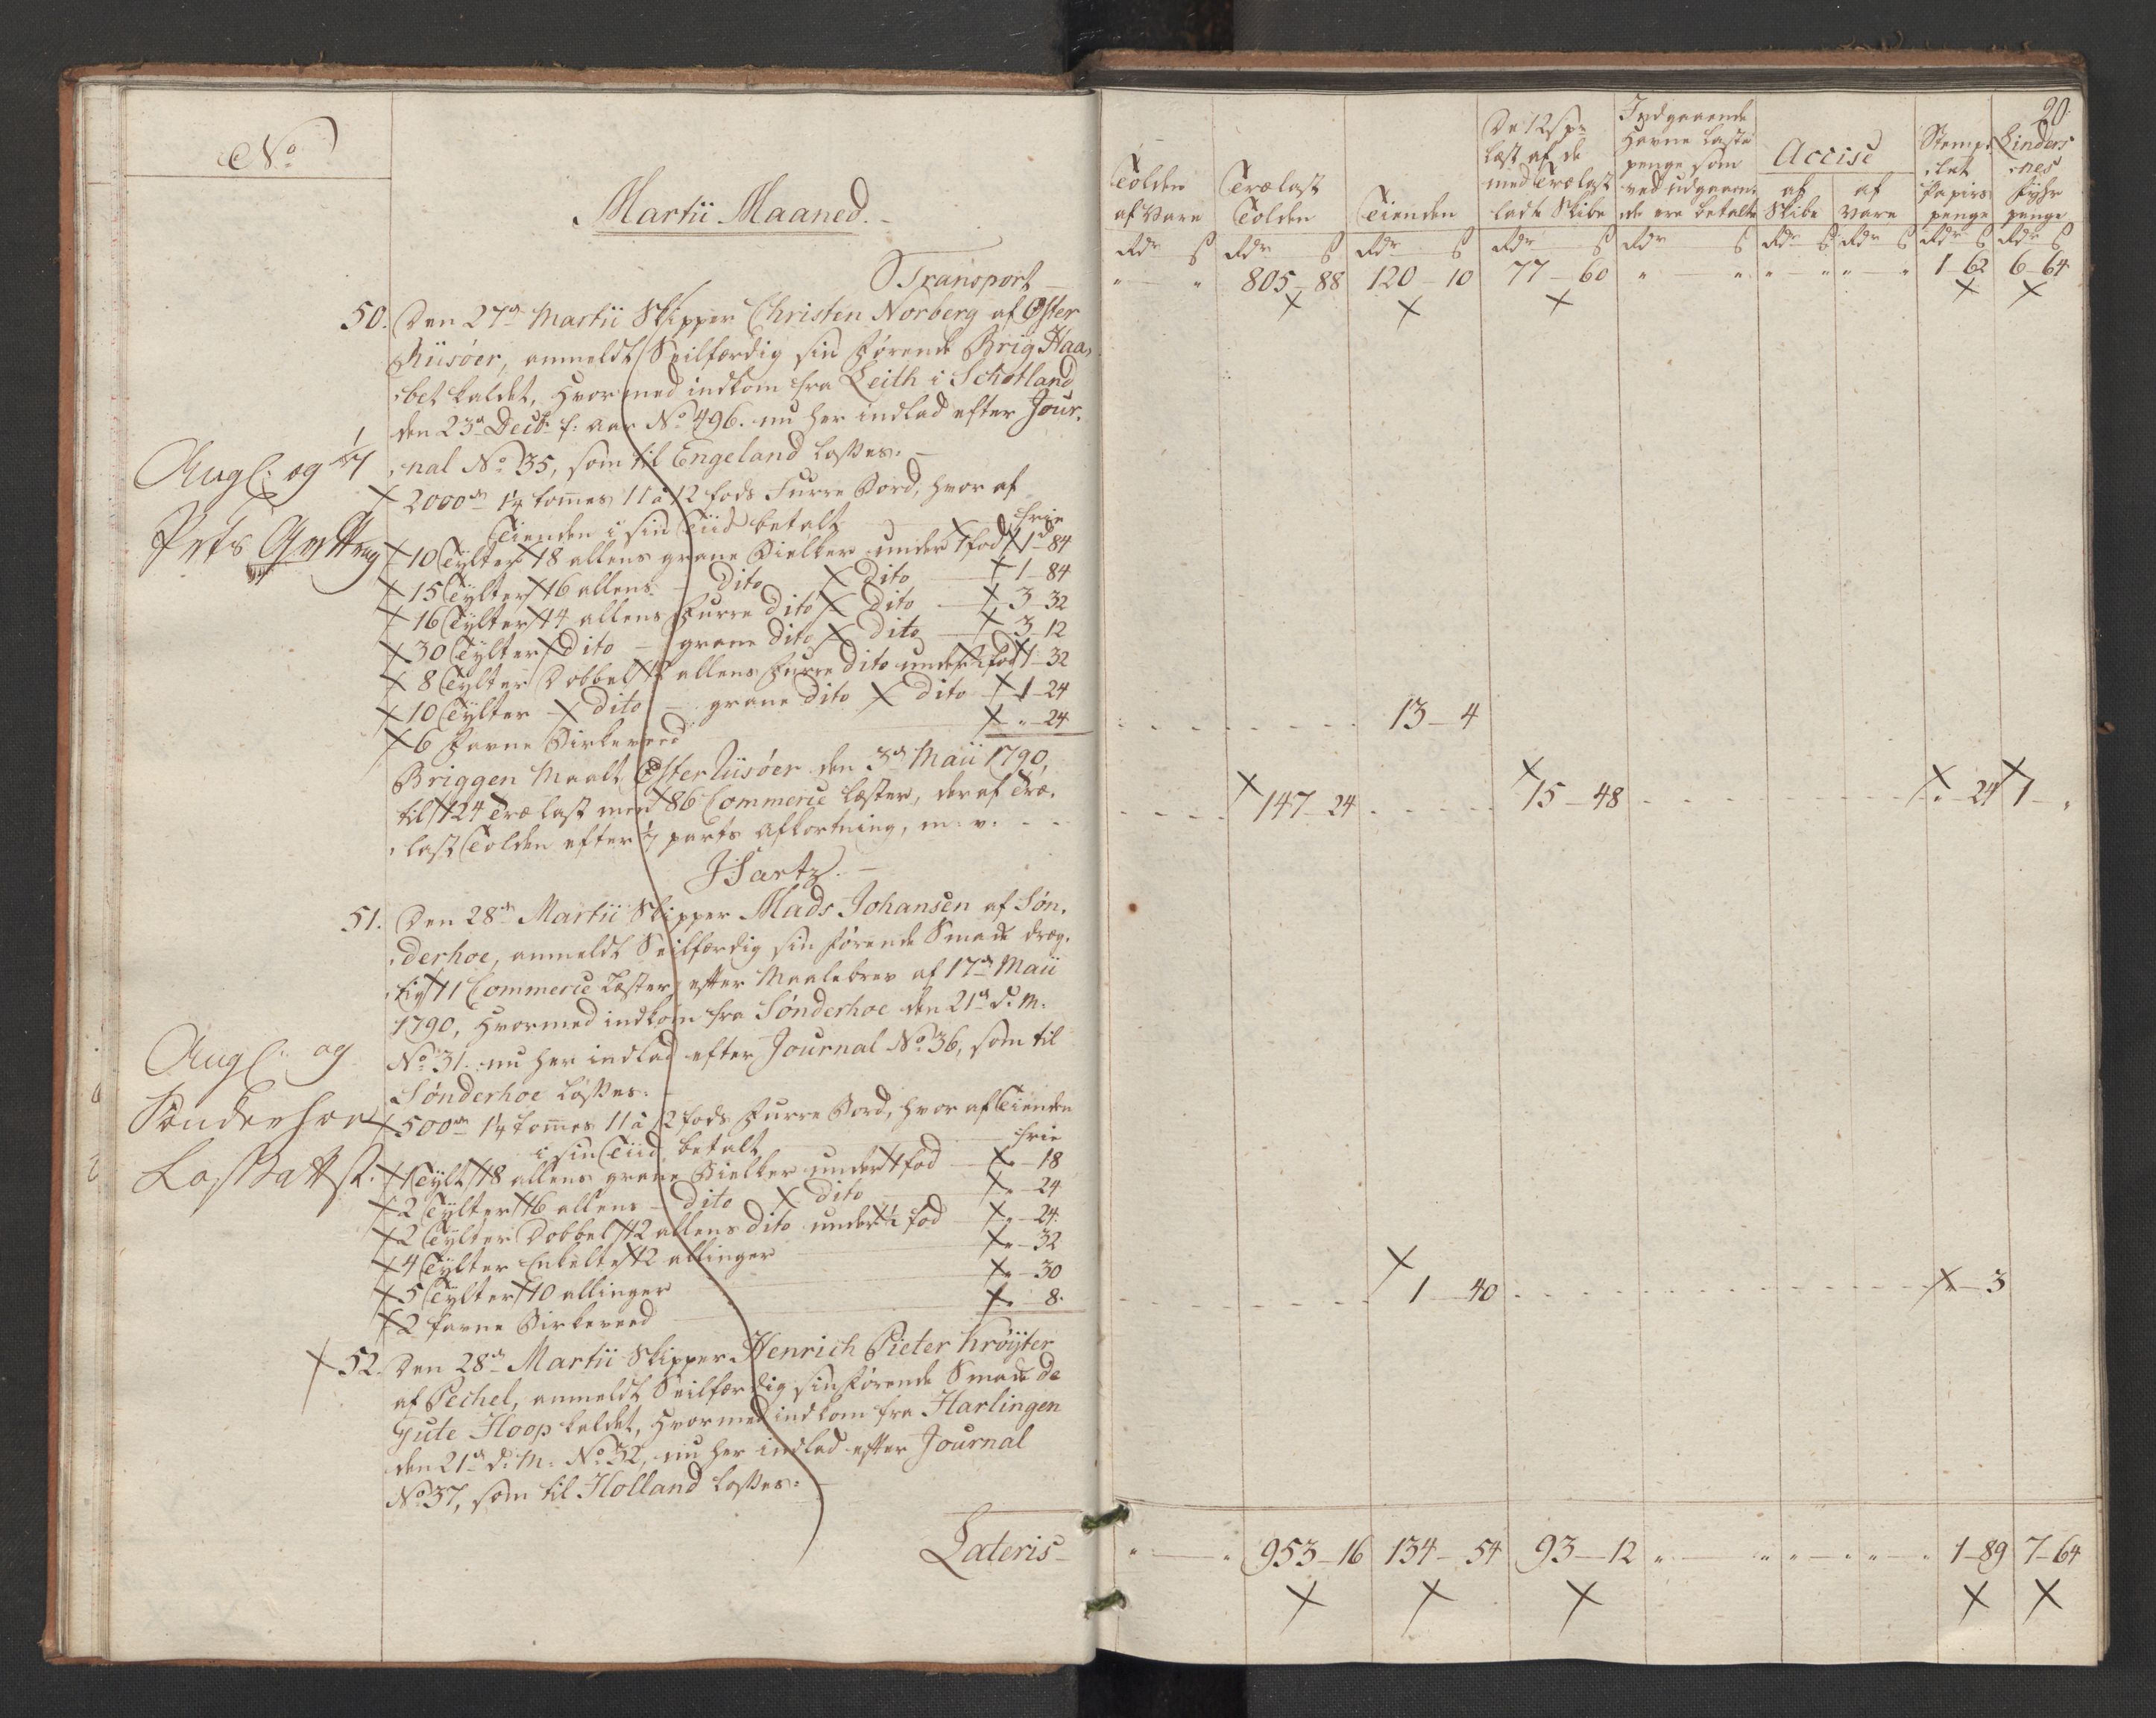 No
Martii Maaned.
Transport
50. Den 27de Martii Skipper Christen Norberg af Øster
Riisøer, anmeldt Seilfærdig sin førende Brig Haa-
bet kaldet, hvormed indkom fra Leith i Schotland
den 23de Decbr f: aar No 496. nu her indlad efter Jour-
nal No 35, som til Engeland losses.
2000de 1¼ tommes 11 à 12 fods Furre Bord, hvor af
Tienden i sin Tiid betalt frie
10 Tylter 18 allens grane Bielker under 1 fod 1d 84
15 Tylter 16 allens dito dito 1-84
16 Tylter 14 allens Furre dito dito 3-32
30 Tylter dito grane dito dito 3-12
8 Tylter Dobbel 12 allens Furre dito under ½ fod 1-32
10 Tylter dito grane dito dito 1-24
6 Favne Birkeveed " 24
Briggen Maalt Øster Riisøer den 3de Maii 1790,
til 124 Trælast men 86 Commerce Læster, der af Træ-
last Tolden efter 1/7 parts Afkortning, m: v:
Hartz.
Augl: og 1/7
Parts
51. Den 28de Martii Skipper Mads Johansen af Søn-
derhoe, anmeldt Seilfærdig sin førende Smack dræg-
tig 11 Commerce Læster, efter Maalebrev af 17de Maii
1790, hvormed indkom fra Sønderhoe den 21de d: M:
No 31. nu her indlad efter Journal No 36, som til
Sønderhoe losses:
500de 1¼ tommes 11 à 12 fods Furre Bord, hvor af Tienden
i sin Tiid betalt frie
1 Tylt 18 allens grane Bielker under 1 fod " 18
2 Tylter 16 allens dito dito " 24
2 Tylter Dobbel 12 allens dito under ½ fod " 24
4 Tylter Enkelte 12 allinger " 32
5 Tylter 10 allinger " 30
2 favne Birkeveed " 8.
Augl: og
Sønderhoe
52. Den 28de Martii Skipper Henrich Pieter Krøyter
af Pechel, anmeldt Seilfærdig sin førende Smack de
gute Hoop kaldet, hvormed indkom fra Harlingen
den 21de d: M: No 32, nu her indlad efter Journal
No 37, som til Holland losses:
Lateris
20.
Tolden
af Vare
Trælast
Tolden
Tienden
De 12 sp
læst af de
med Trælast
ladte Skibe
Indgaaende
Havne Læste
penge som
ved udgaaen-
de ere betalte
Accise
af
Skibe
af
Vare
Stemp-
let
Papirs
penge
Linders
nes
Fyhr
penge
Rdr ß Rdr ß Rdr ß Rdr ß Rdr ß Rdr ß Rdr ß Rdr ß Rdr ß
" " 805-88 120-10 77-60 " " " " " " 1-62 6-64
13-4
147-24 15-48 " 24 1-"
1-40 " 3
" " 953-16 134-54 93-12 " " " " " " 1-89 7-64